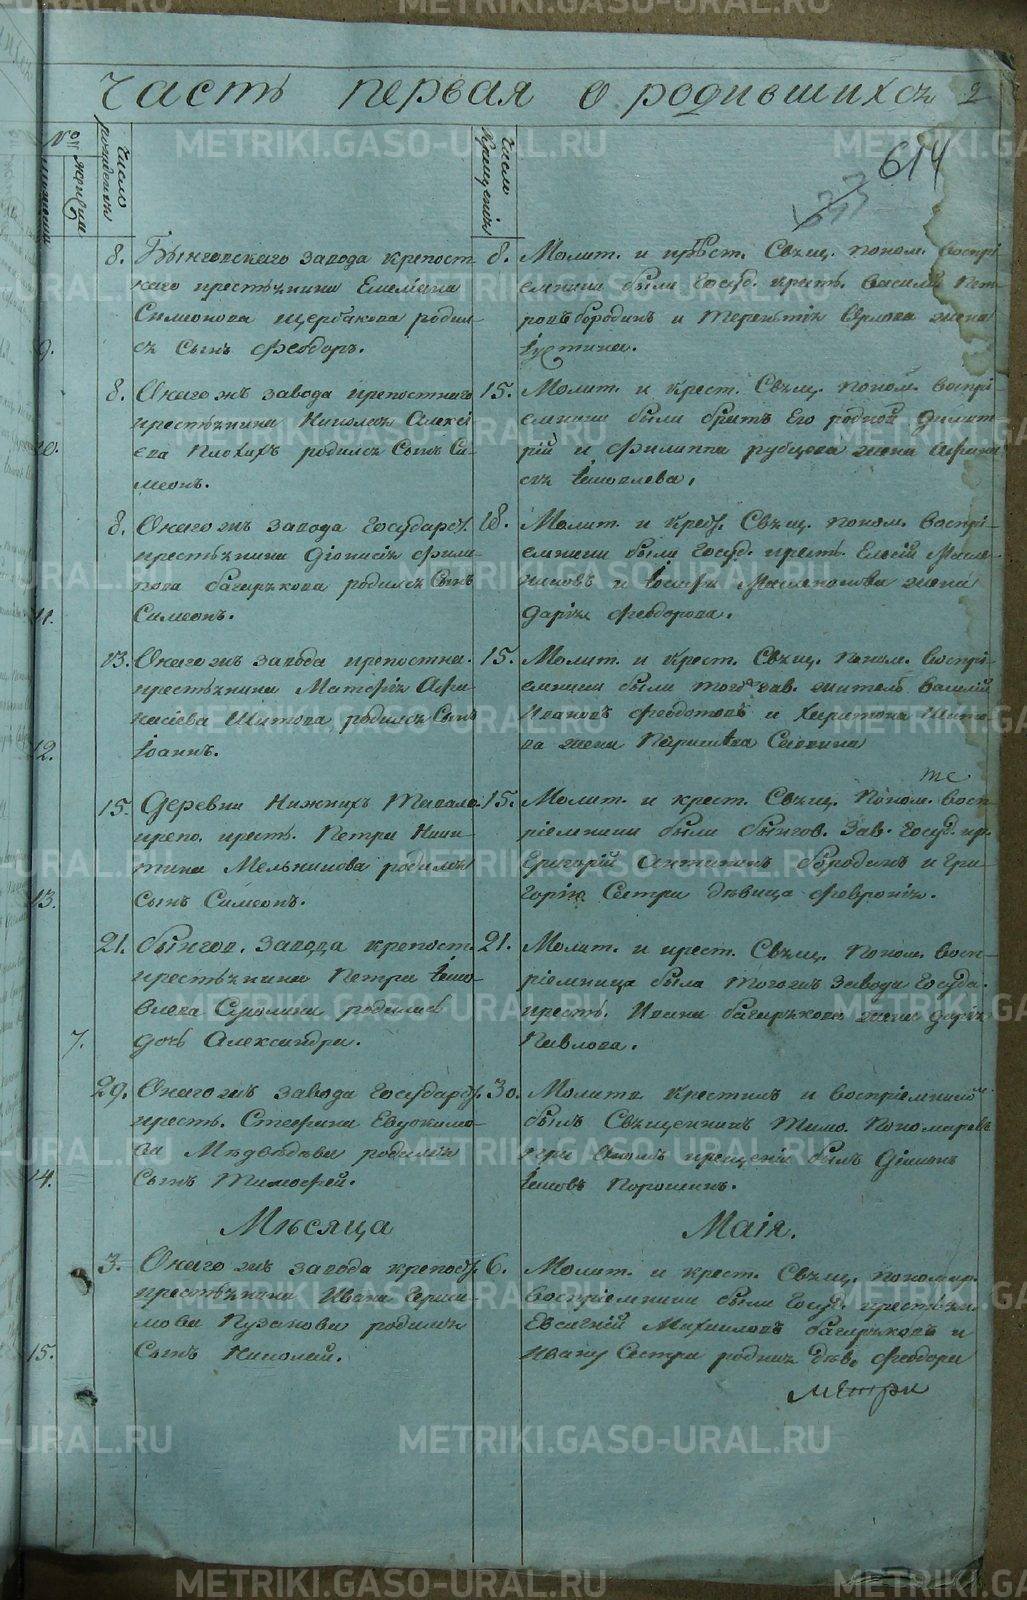 Часть первая о родившихся 2
№
мужеска
женска
число рождения
число крещения
614
8. Бынговскаго завода крепост
наго крестьянина Емелiана
Симионова Щербакова родил
ся сынъ Феодоръ.
9.
8. Молит. и крест. Свящ. Поном. Воспрi
емники были Госуд. крест. Василiй Пет
ровъ Бородинъ и Терентiя Орлова жена
Iустина.
8. Онаго жъ завода крепостнаго
крестьянина Николая Алексi
ева Плохихъ родился сынъ Си
меонъ.
10.
15. Молит. и крест. Свящ. Поном. Воспрi
емники были братъ его родной Димит
рiй и Филиппа Рубцова жена
Iаковлева.
8. Онаго жъ завода Государст.
крестьянина Дiонисiя Фили
пова Багирякова родился сынъ
Симеонъ.
11.
18. Молит. и крест. Свящ. Поном. Воспрi
емники были Госуд. крест. Елесiй
и Iосифа жена
Дарья Феодорова.
13. Онаго жъ завода крепостна.
крестьянина Матфiя Афа
насiева Шитова родился сынъ
Iоаннъ.
12.
15. Молит. и крест. Свящ. Поном. Воспрi
емники были того зав. житель Василiй
Ивановъ Феодотовъ и Харитона Шито
ва жена
15. Деревни Нижнихъ Тавало
крепо. крест. Петра Ники
тина Мельникова родился
сынъ Симеонъ.
13.
15. Молит. и крест. Свящ. Поном. Восп
рiемники были Бынгов. Зав. Госуд. кр.
Григорiй Антипинъ Бородинъ и Гри
горiя сестра девица Феврония.
21. Бынгов. завода крепост.
крестьянина Петра Iако
влева родилась
дочь Александра.
7.
21. Молит. и крест. Свящ. Поном. Восп
рiемница была тогожъ завода Госуда.
крест. Ивана Багирякова жена Дарья
Павлова.
29. Онаго жъ завода Государст.
крест. Стефана Евдокимо
ва Медведева родился
сынъ Тимофей.
14.
30. Молитв. крестилъ и воспрiемникомъ
былъ Священникъ Тимо. Пономаревъ
при ономъ крещенiи былъ Дiякон
Iаковъ Порошинъ.
Месяца Маiя.
3. Онаго жъ завода крепост.
крестьянина Ивана
Пузанова родился
сынъ Николай.
15.
6. Молит. и крест. Свящ. Пономар.
воспрiемники были Госуд. крестьян.
Евсигнiй Михаиловъ Багиряковъ и
Ивану сестра родная дев. Феодора
Метри